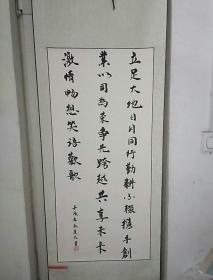 立足大地日月同行勤耕不辍携手创
业以司为荣争先跨越共享未来
激情畅想笑语欢歌